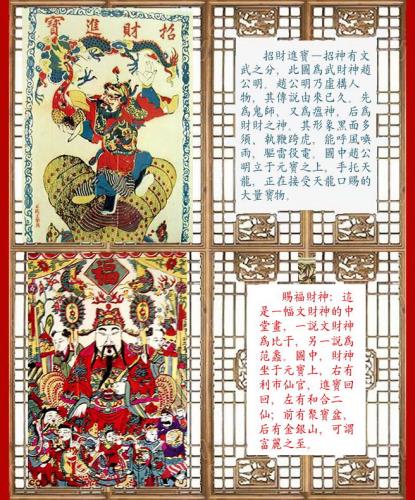 招財進寶
招財進寶—招神有文
武之分，此圖爲武財神趙
公明。趙公明乃虛構人
物，其傳説由來已久。先
爲鬼師、又爲瘟神，后爲
財財之神。其形象黑面多
須，執鞭跨虎，能呼風喚
雨，驅雷役電。圖中趙公
明立于元寶之上，手托天
龍，正在接受天龍口賜的
大量寶物。
福
賜福財神：這
是一幅文財神的中
堂畫，一説文財神
爲比干，另一説爲
范蠡。圖中，財神
坐于元寶上，右有
利市仙官，進寶回
回，左有和合二
仙；前有聚寶盆，
后有金銀山，可謂
富麗之至。